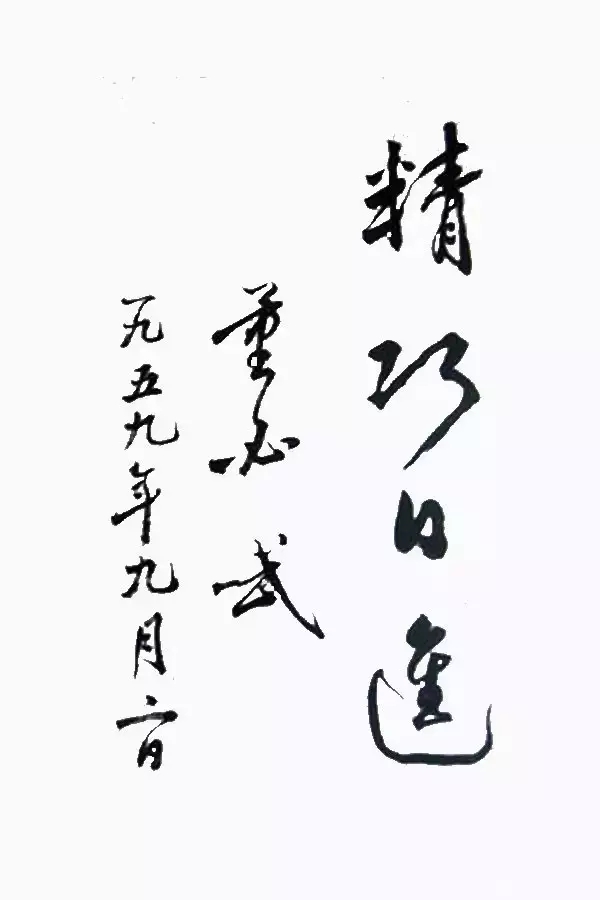 精巧日進
董必武
一九五九年九月二日